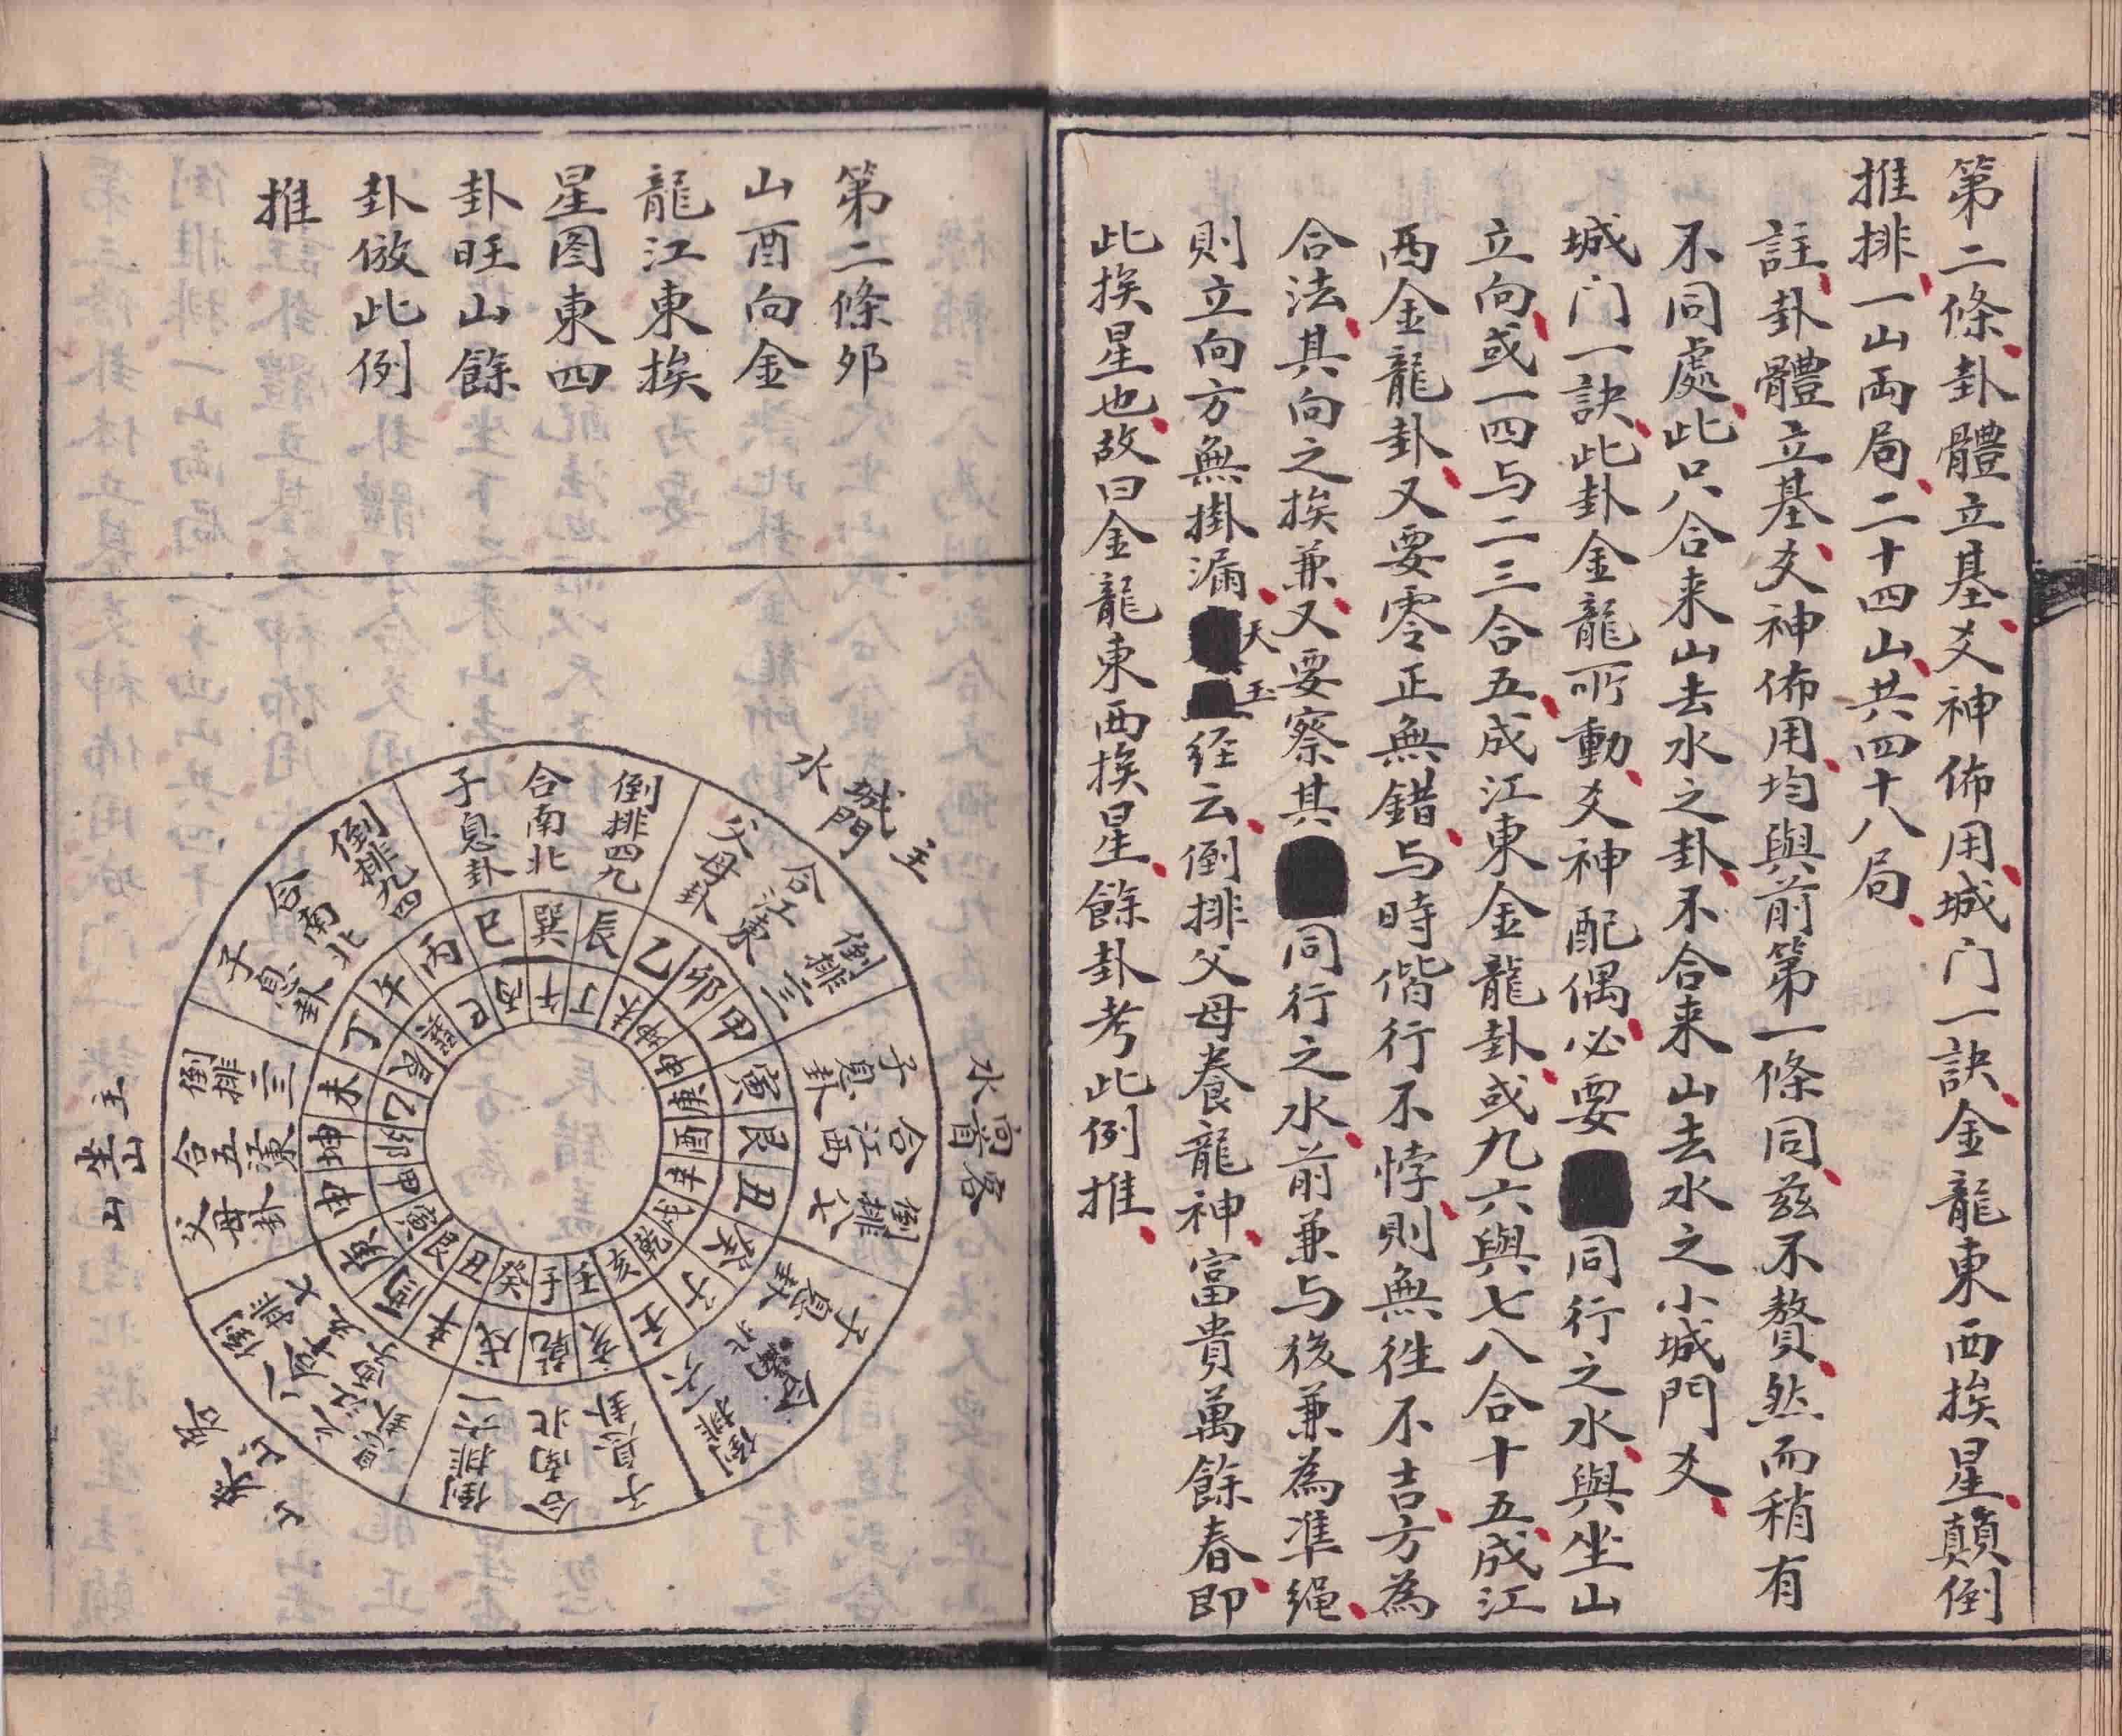 第二條卦體立基爻神佈用城门一訣金龍東西挨星顛倒
推排一山両局二十四山共四十八局
註卦體立基爻神佈用均與前第一條同兹不贅然而稍有
不同處此只合来山去水之卦不合来山去水之小城門爻
城门一訣此卦金龍所動爻神配偶必要同行之水與坐山
立向或一四与二三合五成江東金龍卦或九六與七八合十五成江
西金龍卦又要零正無錯与時偕行不悖則無徃不吉方為
合法其向之挨兼又要察其同行之水前兼与後兼為準绳
則立向方無掛漏天玉经云倒排父母養龍神富貴萬餘春即
此挨星也故曰金龍東西挨星餘卦考此例推
第二條夘
山酉向金
龍江東挨
星图東四
卦旺山餘
卦倣此例
推
水
城門
主
水
向首
客
主
坐山
山
客
来山
山
倒排四九
合南北
子息卦
倒排三二
合江東
父母卦
倒排八七
合江西
子息卦
倒排一六
合南北
子息卦
倒排六一
合南北
子息卦
倒排七八
倒排二三
合五江東
父母卦
倒排九四
合南北
子息卦
巳巽辰乙卯甲寅艮丑癸子壬亥乾戌辛酉庚申坤未丁午丙
丙午丁未坤申庚酉辛戌乾亥壬子癸丑艮寅甲卯乙辰巽巳